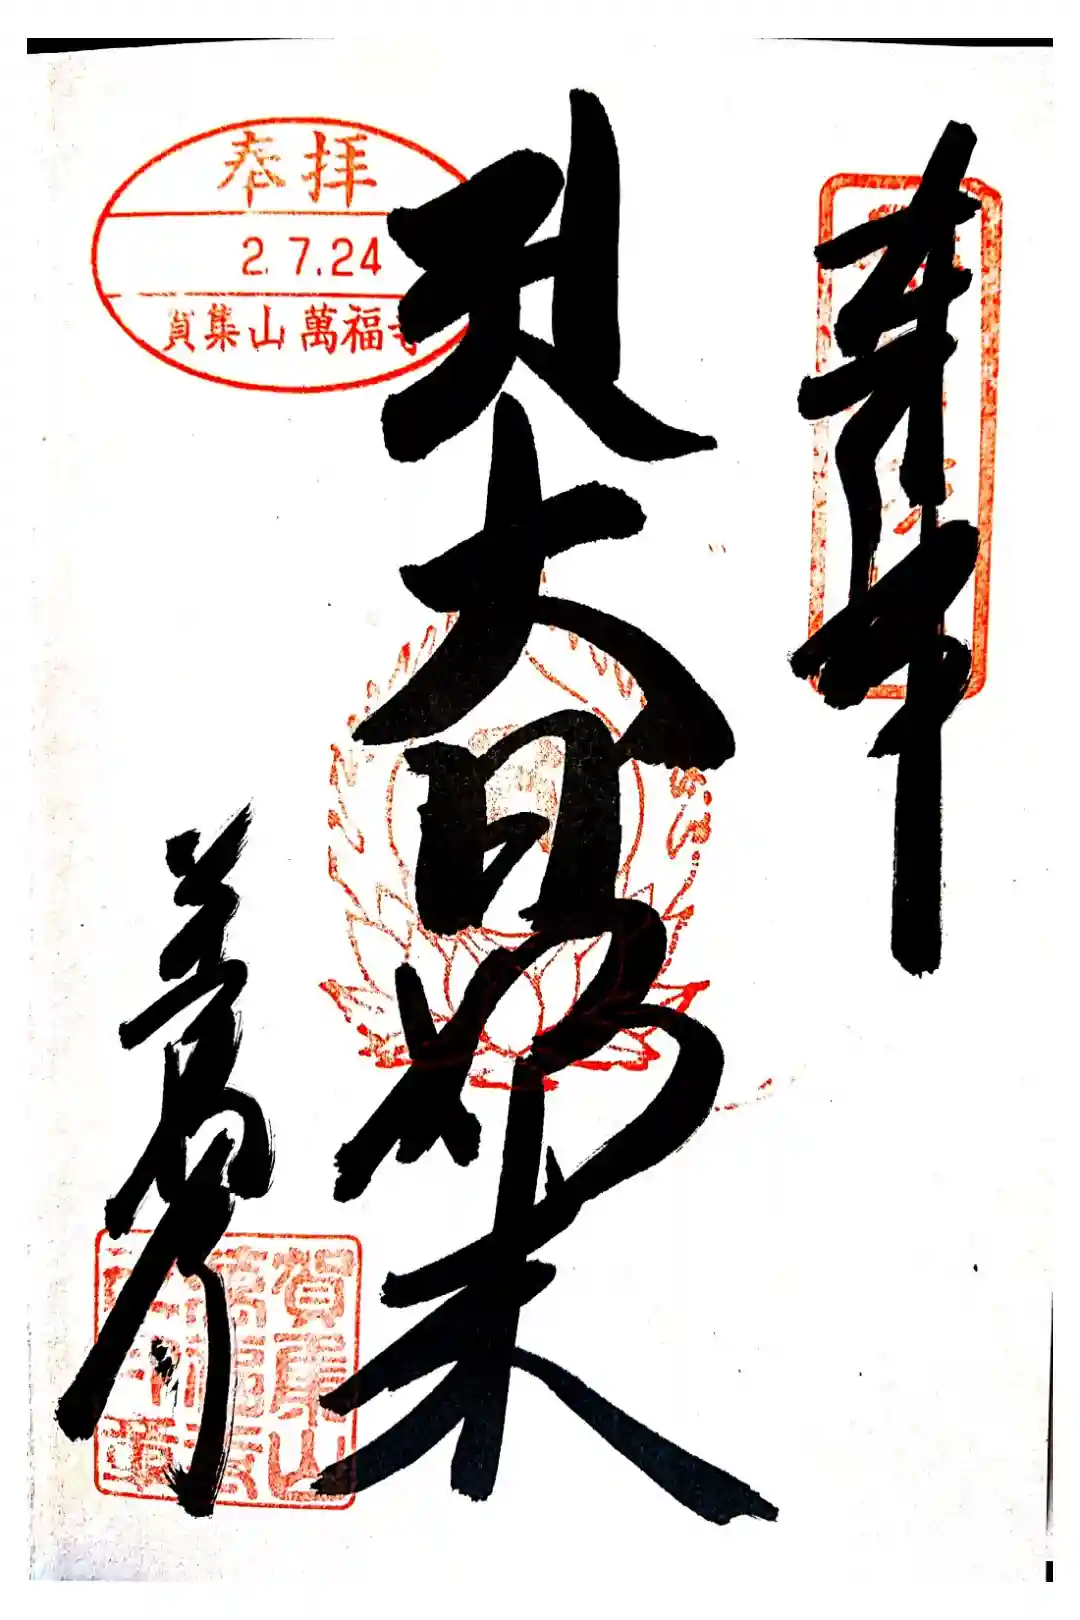 奉拝
大日如来
萬福寺
奉拝
2.7.24
賀集山 萬福寺
賀集山
萬福寺